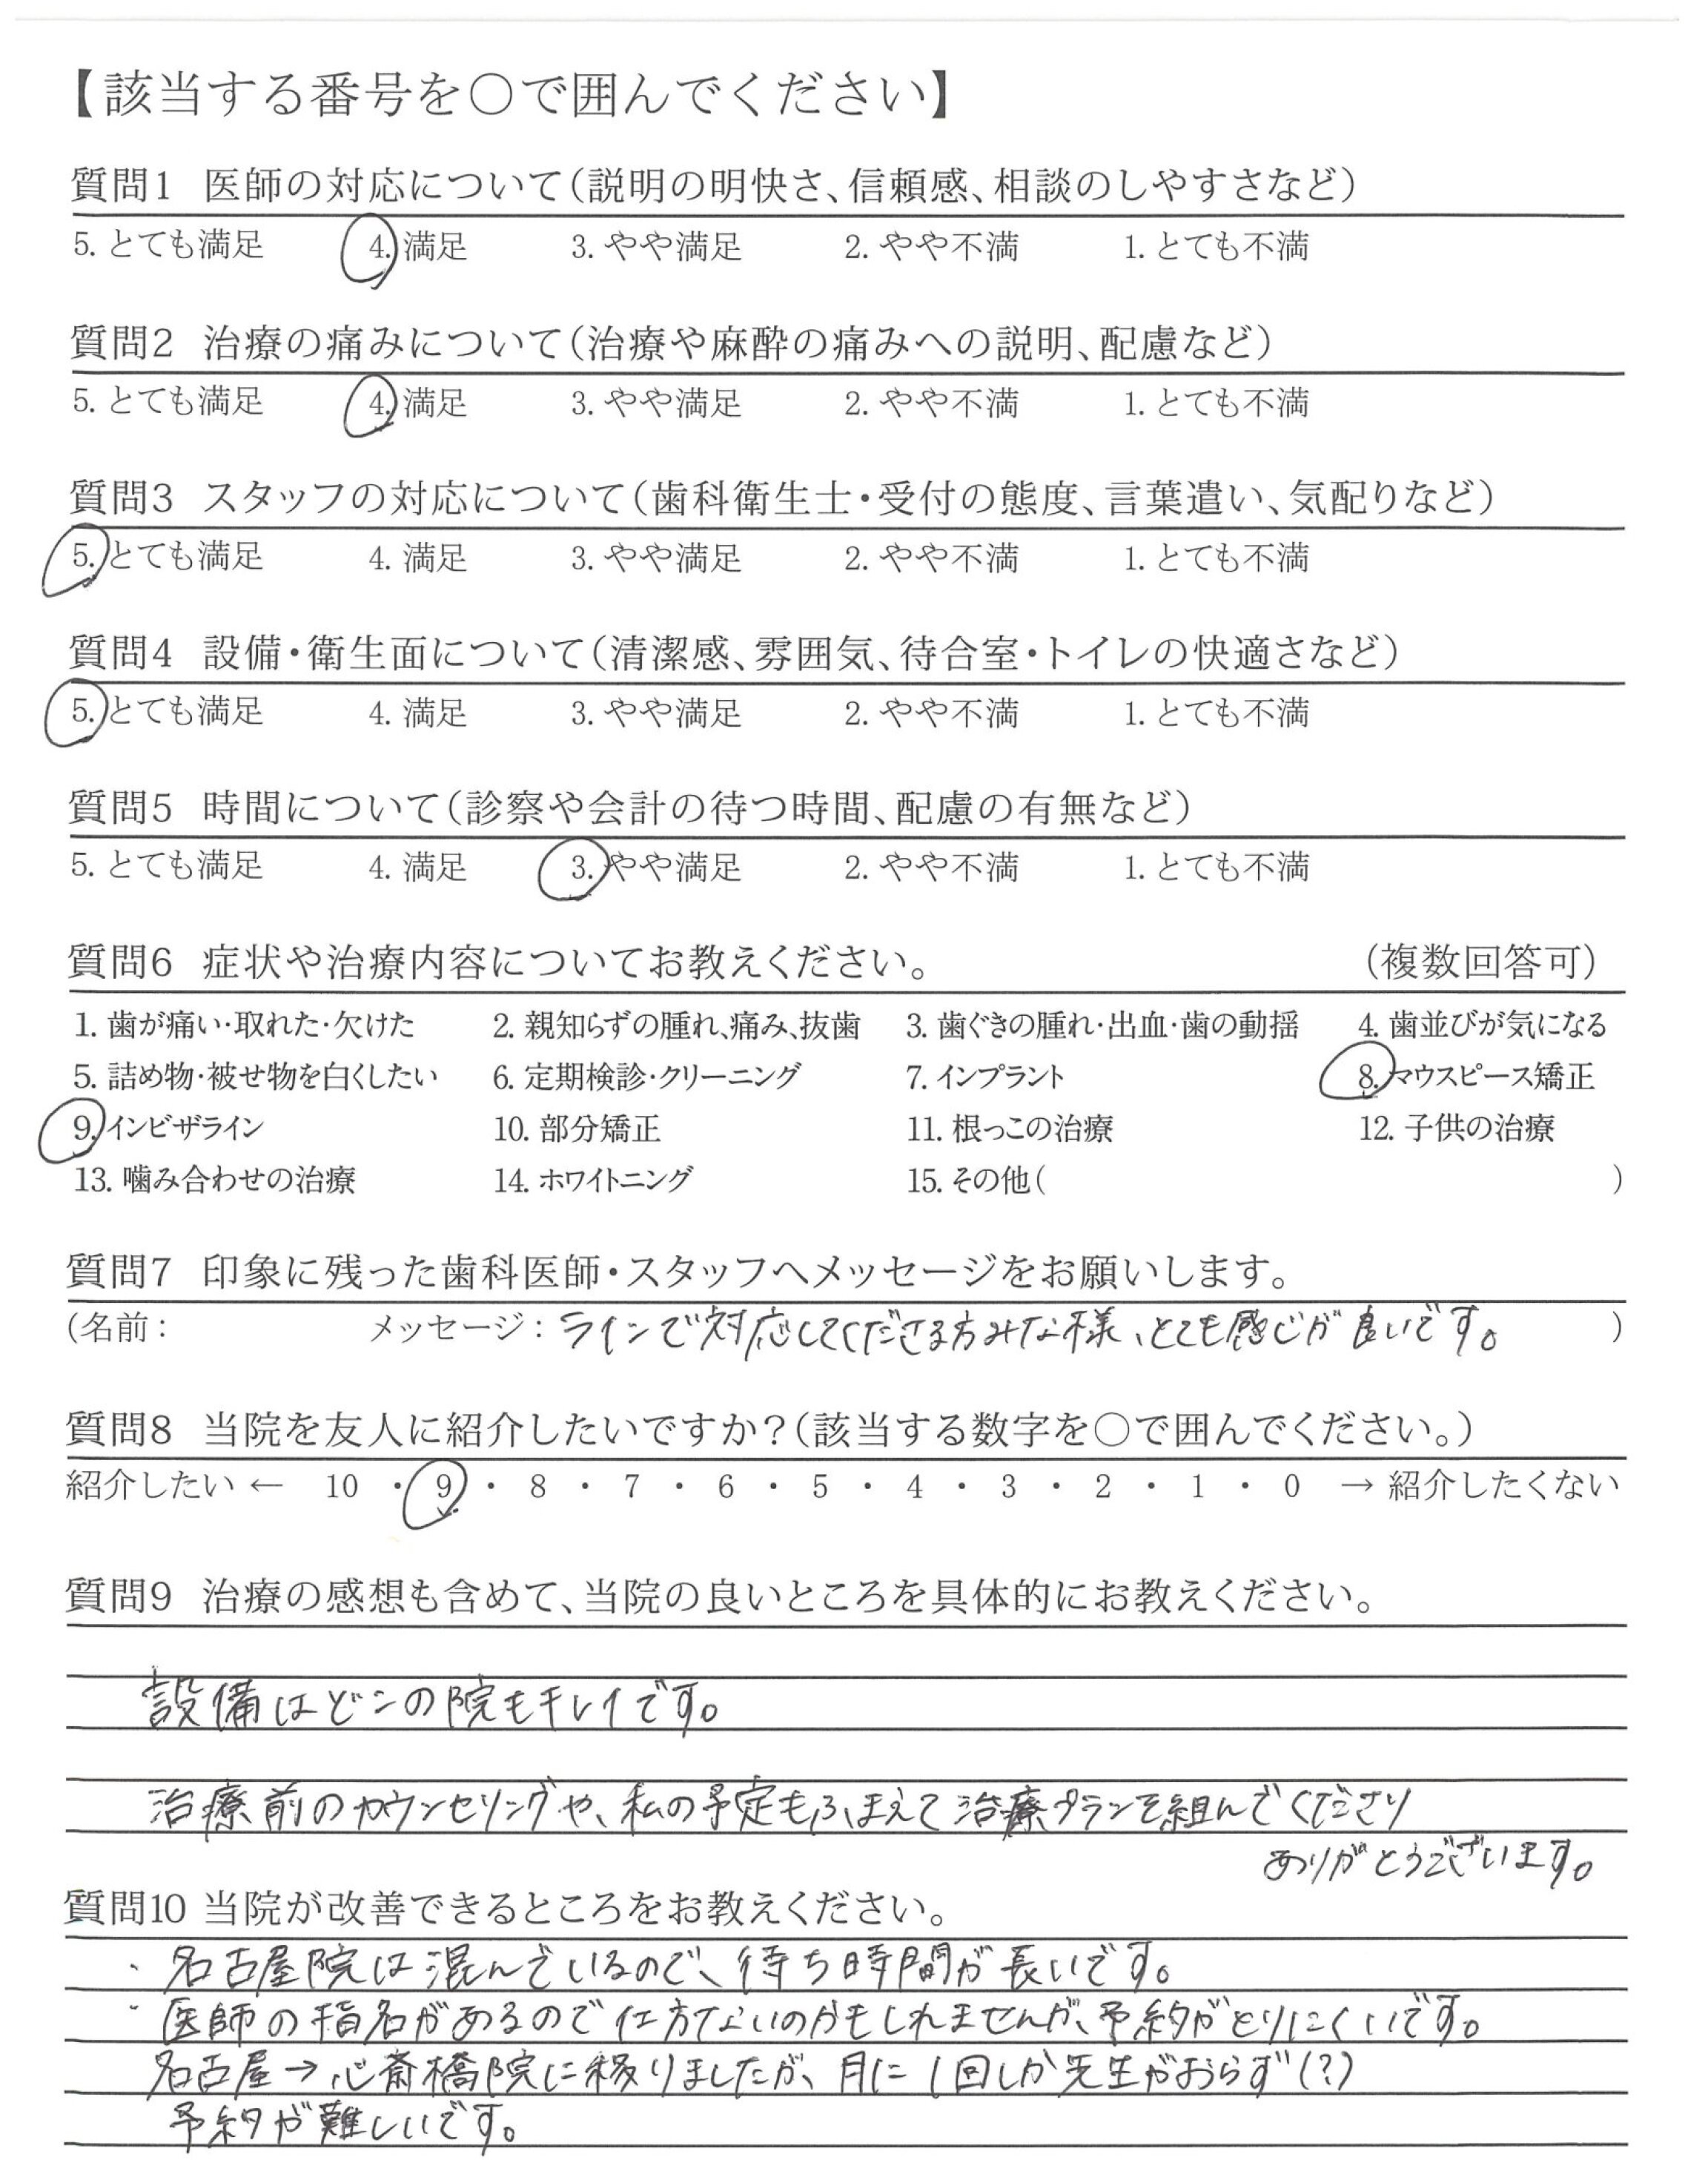 【該当する番号を○で囲んでください】
質問1 医師の対応について(説明の明快さ、信頼感、相談のしやすさなど)
5. とても満足 4. 満足 3. やや満足 2. やや不満 1. とても不満
質問2 治療の痛みについて(治療や麻酔の痛みへの説明、配慮など)
5. とても満足 4. 満足 3. やや満足 2. やや不満 1. とても不満
質問3 スタッフの対応について(歯科衛生士・受付の態度、言葉遣い、気配りなど)
5. とても満足 4. 満足 3. やや満足 2. やや不満 1. とても不満
質問4 設備・衛生面について(清潔感、雰囲気、待合室・トイレの快適さなど)
5. とても満足 4. 満足 3. やや満足 2. やや不満 1. とても不満
質問5 時間について(診察や会計の待つ時間、配慮の有無など)
5. とても満足 4. 満足 3. やや満足 2. やや不満 1. とても不満
質問6 症状や治療内容についてお教えください。 (複数回答可)
1. 歯が痛い・取れた・欠けた 2. 親知らずの腫れ、痛み、抜歯 3. 歯ぐきの腫れ・出血・歯の動揺 4. 歯並びが気になる
5. 詰め物・被せ物を白くしたい 6. 定期検診・クリーニング 7. インプラント 8. マウスピース矯正
9. インビザライン 10. 部分矯正 11. 根っこの治療 12. 子供の治療
13. 噛み合わせの治療 14. ホワイトニング 15. その他( )
質問7 印象に残った歯科医師・スタッフへメッセージをお願いします。
(名前: メッセージ: ラインで対応してくださる方みな様、とても感じが良いです。 )
質問8 当院を友人に紹介したいですか?(該当する数字を○で囲んでください。)
紹介したい ← 10 ・ 9 ・ 8 ・ 7 ・ 6 ・ 5 ・ 4 ・ 3 ・ 2 ・ 1 ・ 0 → 紹介したくない
質問9 治療の感想も含めて、当院の良いところを具体的にお教えください。
設備はどこの院もキレイです。
治療前のカウンセリングや、私の予定もふまえて治療プランを組んでくださり
ありがとうございます。
質問10 当院が改善できるところをお教えください。
・名古屋院は混んでいるので、待ち時間が長いです。
・医師の指名があるので仕方ないのかもしれませんが、予約がとりにくいです。
名古屋→心斎橋院に移りましたが、月に1回しか先生がおらず(?)
予約が難しいです。